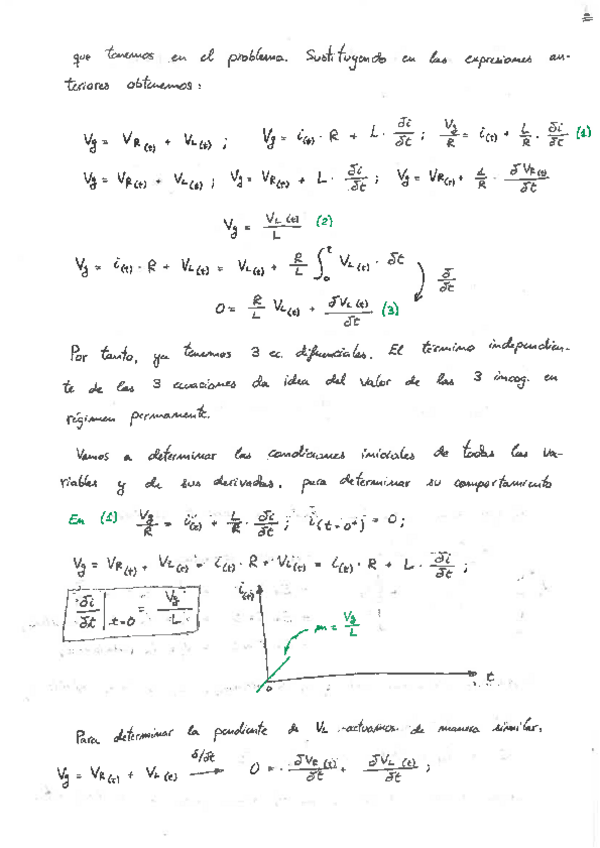 que tenemos en el problema. Sustituyendo en las expresiones an-
teriores obtenemos:
Vg = VR(t) + VL(t) ; Vg = i(t) · R + L · δi/δt ; Vg/R = i(t) + L/R · δi/δt (1)
Vg = VR(t) + VL(t) ; Vg = VR(t) + L · δi/δt ; Vg = VR(t) + L/R · δVR(t)/δt
Vg = VL(t)/L (2)
Vg = i(t) · R + VL(t) = VL(t) + R/L ∫₀ᵗ VL(t) · δt ) δ/δt
0 = R/L VL(t) + δVL(t)/δt (3)
Por tanto, ya tenemos 3 ec. difernciales. El término independien-
te de las 3 ecuaciones da idea del valor de las 3 incog. en
régimen permanente.
Vamos a determinar las condiciones iniciales de todas las va-
riables y de sus derivadas, para determinar su comportamiento
En (1) Vg/R = i(t) + L/R · δi/δt ; i(t=0+) = 0 ;
Vg = VR(t) + VL(t) = i(t) · R + VL(t) = i(t) · R + L · δi/δt ;
δi/δt | t=0 = Vg/L
i(t)
m = Vg/L
t
0
Para determinar la pendiente de VL actuamos de manera similar:
Vg = VR(t) + VL(t) δ/δt → 0 = δVR(t)/δt + δVL(t)/δt ;